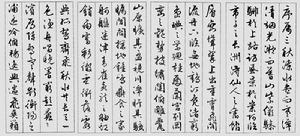 序屬三秋潦水盡而寒潭
清烟光凝而暮山紫儼驂
騑於上路訪風景於崇阿臨
帝子之長洲得仙人之舊館
層巒聳翠上出重霄飛閣
流丹下臨無地鶴汀鳧渚窮
島嶼之縈迴桂殿蘭宮列岡
巒之體勢披繡闥俯雕甍
山原曠其盈視川澤紆其駭
矚閭閻撲地鐘鳴鼎食之家
舸艦迷津青雀黃龍之舳
雲銷雨霽彩徹區明落霞
與孤鶩齊飛秋水共長天一
色漁舟唱晚響窮彭蠡之
濱雁陣驚寒聲斷衡陽之
浦遙吟俯暢逸興遄飛爽籟